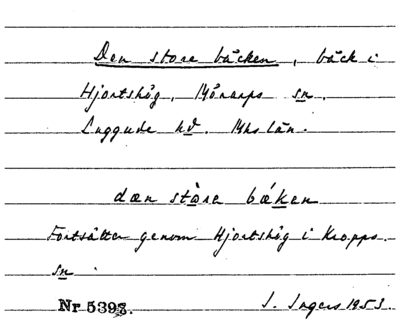 Den store bäcken, bäck i
Hjortshög, Mörarps sn.
Luggude hd. Mhs län.
dæn stòre bǽken
Fortsätter genom Hjortshög i Kropps
sn
Nr 5393. I. Ingers 1953